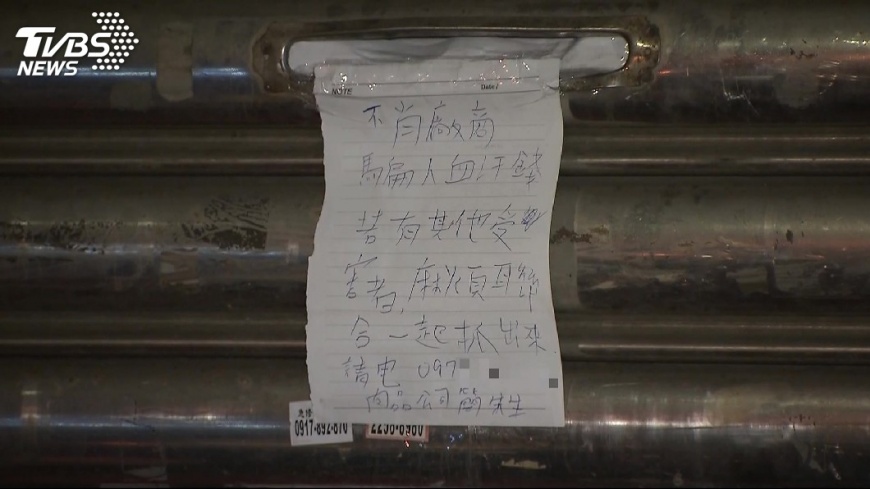 TVBS
NEWS
NOTE
Date /
不肖廠商
馬扁人血汗錢
若有其他受
害者,麻煩聯
合一起抓出來
請电 097
尚品公司 簡先生
急修
0917-892-870